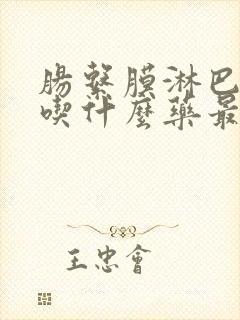 腸繫膜淋巴
喫什麼藥最
王忠會